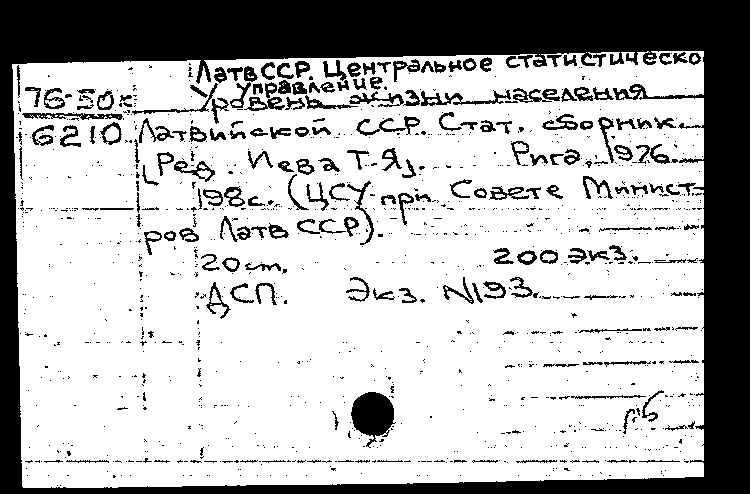 ЛатвССР. Центральное статистическо
управление.
76-50к Уровень жизни населения
6210 Латвийской ССР. Стат. сборник.
[Ред. Иева Т.Я].  Рига, 1976.
198с. (ЦСУ при Совете Минист-
ров Латв ССР).
20см.  200 экз.
ДСП.  Экз. N193.
рб